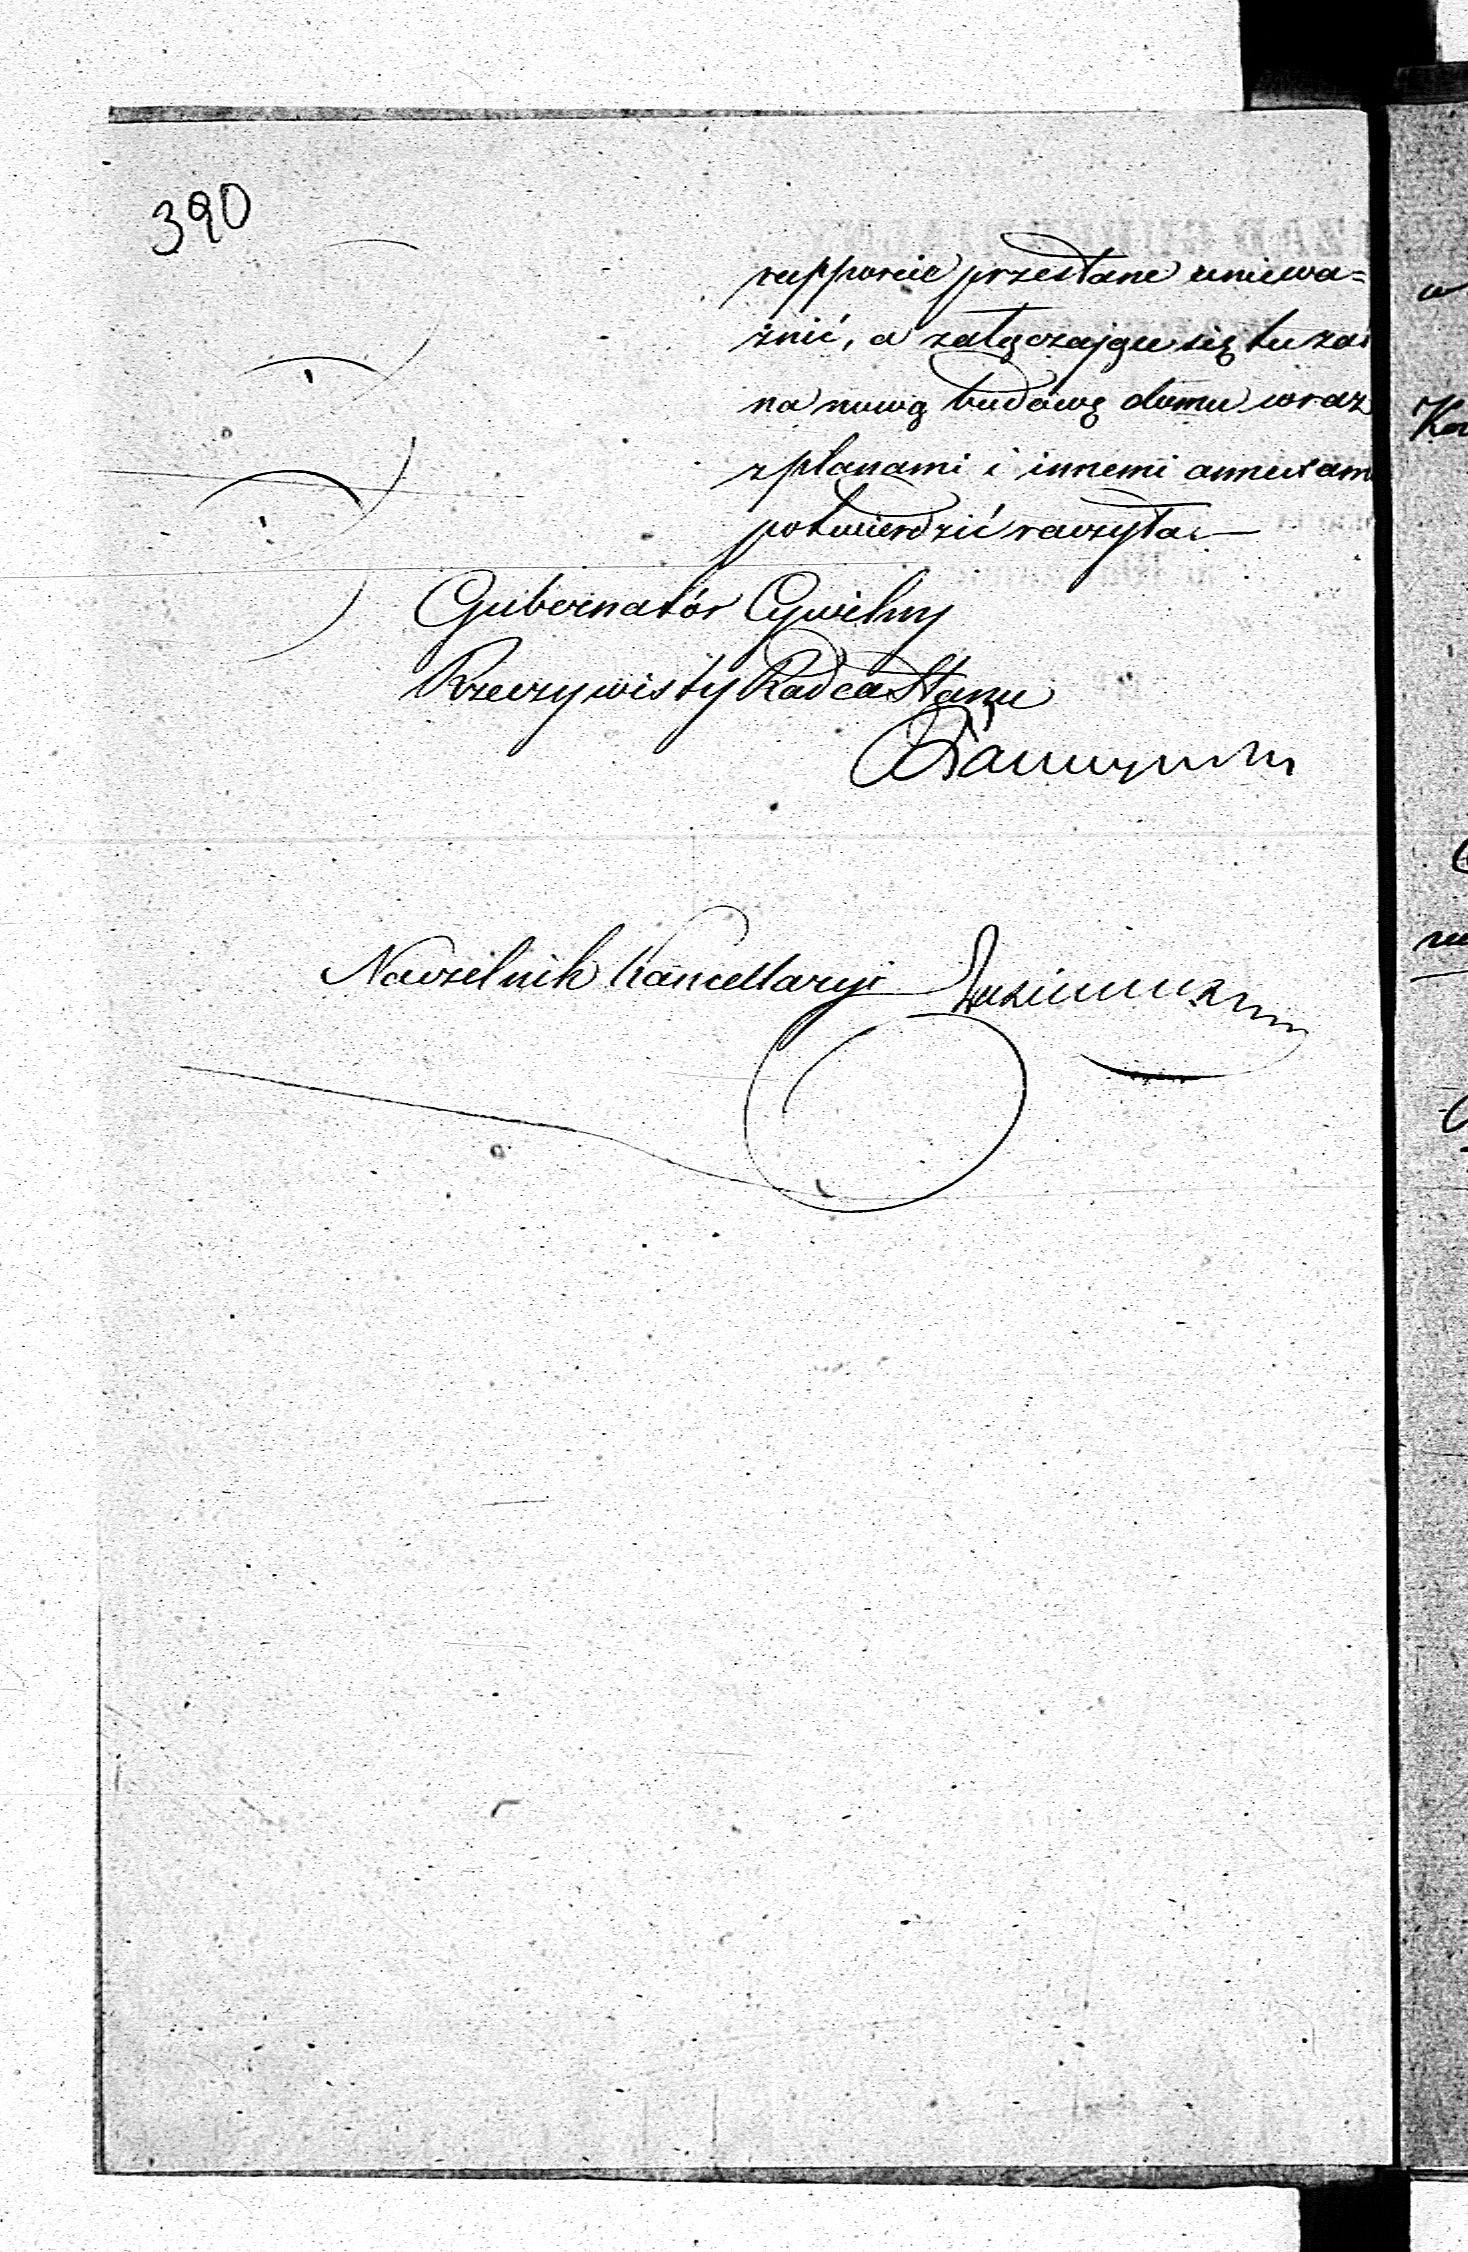 390
rapporcie przesłane uniewa=
żnić, a załączające się tu zaś
na nową budowę domu wraz
z planami i innemi annexami
potwierdzić raczyła.—
Gubernator Cywilny
Rzeczywisty Radca Stanu
Naczelnik Kancellaryi